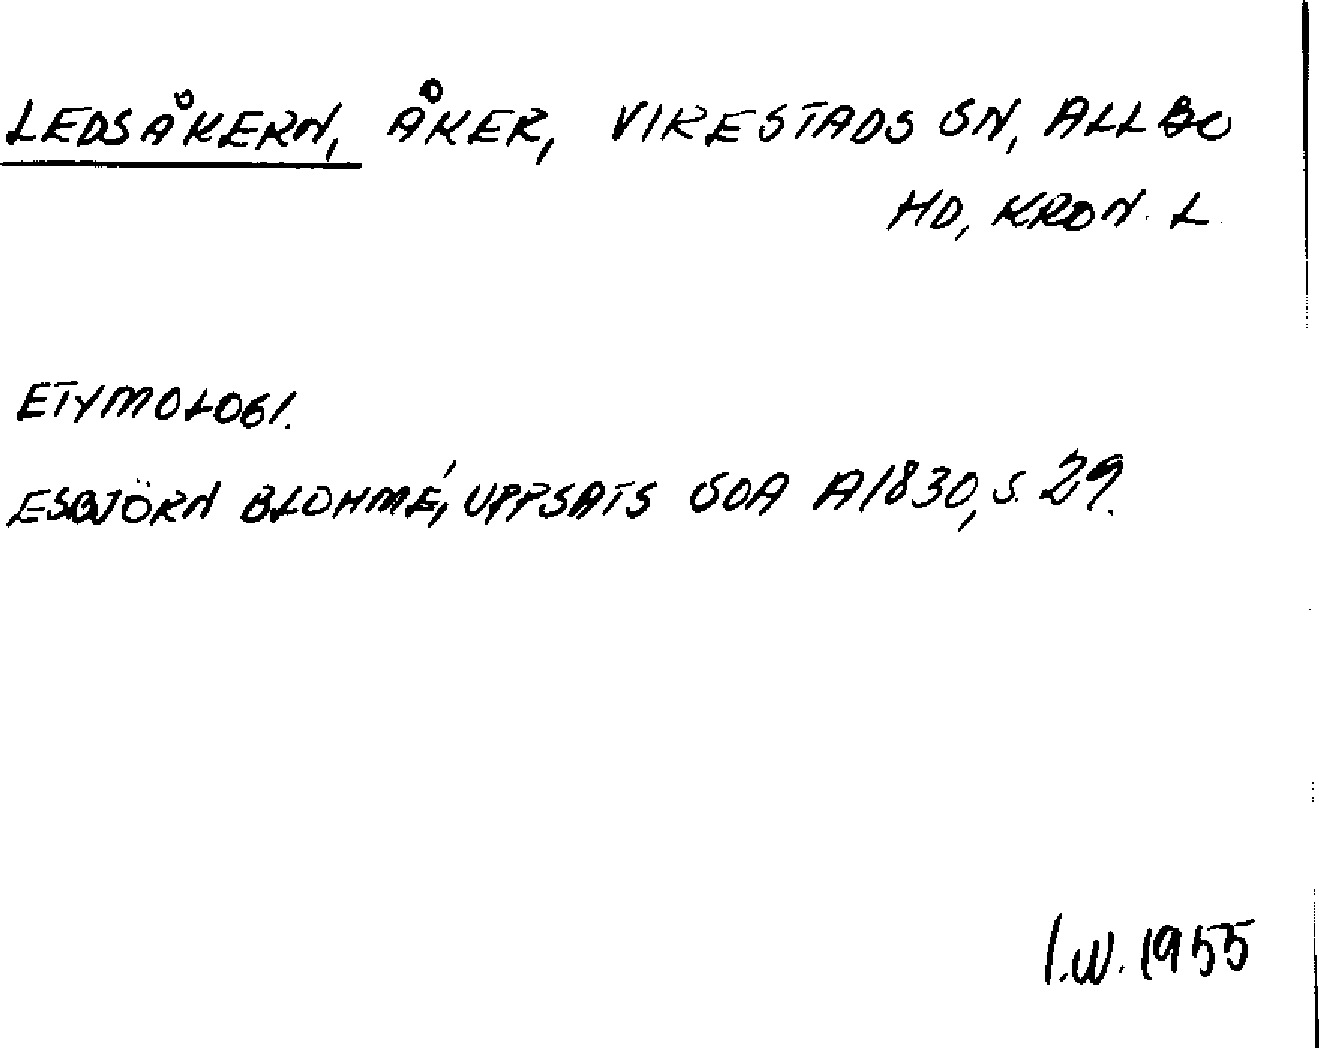 LEDSÅKERN, ÅKER, VIRESTADS SN, ALLBO
HD, KRON. L
ETYMOLOGI.
ESBJÖRN BLOHMÉ, UPPSATS SOA A1830, S. 29.
I.W. 1955